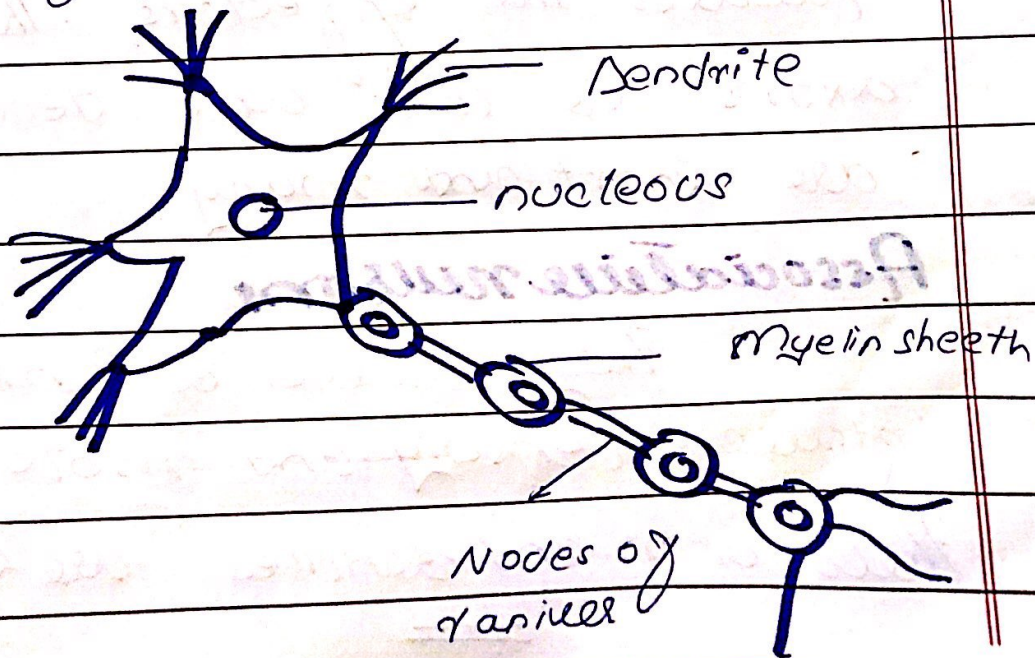 Dendrite
nucleous
Myelin sheeth
Nodes of
raniver